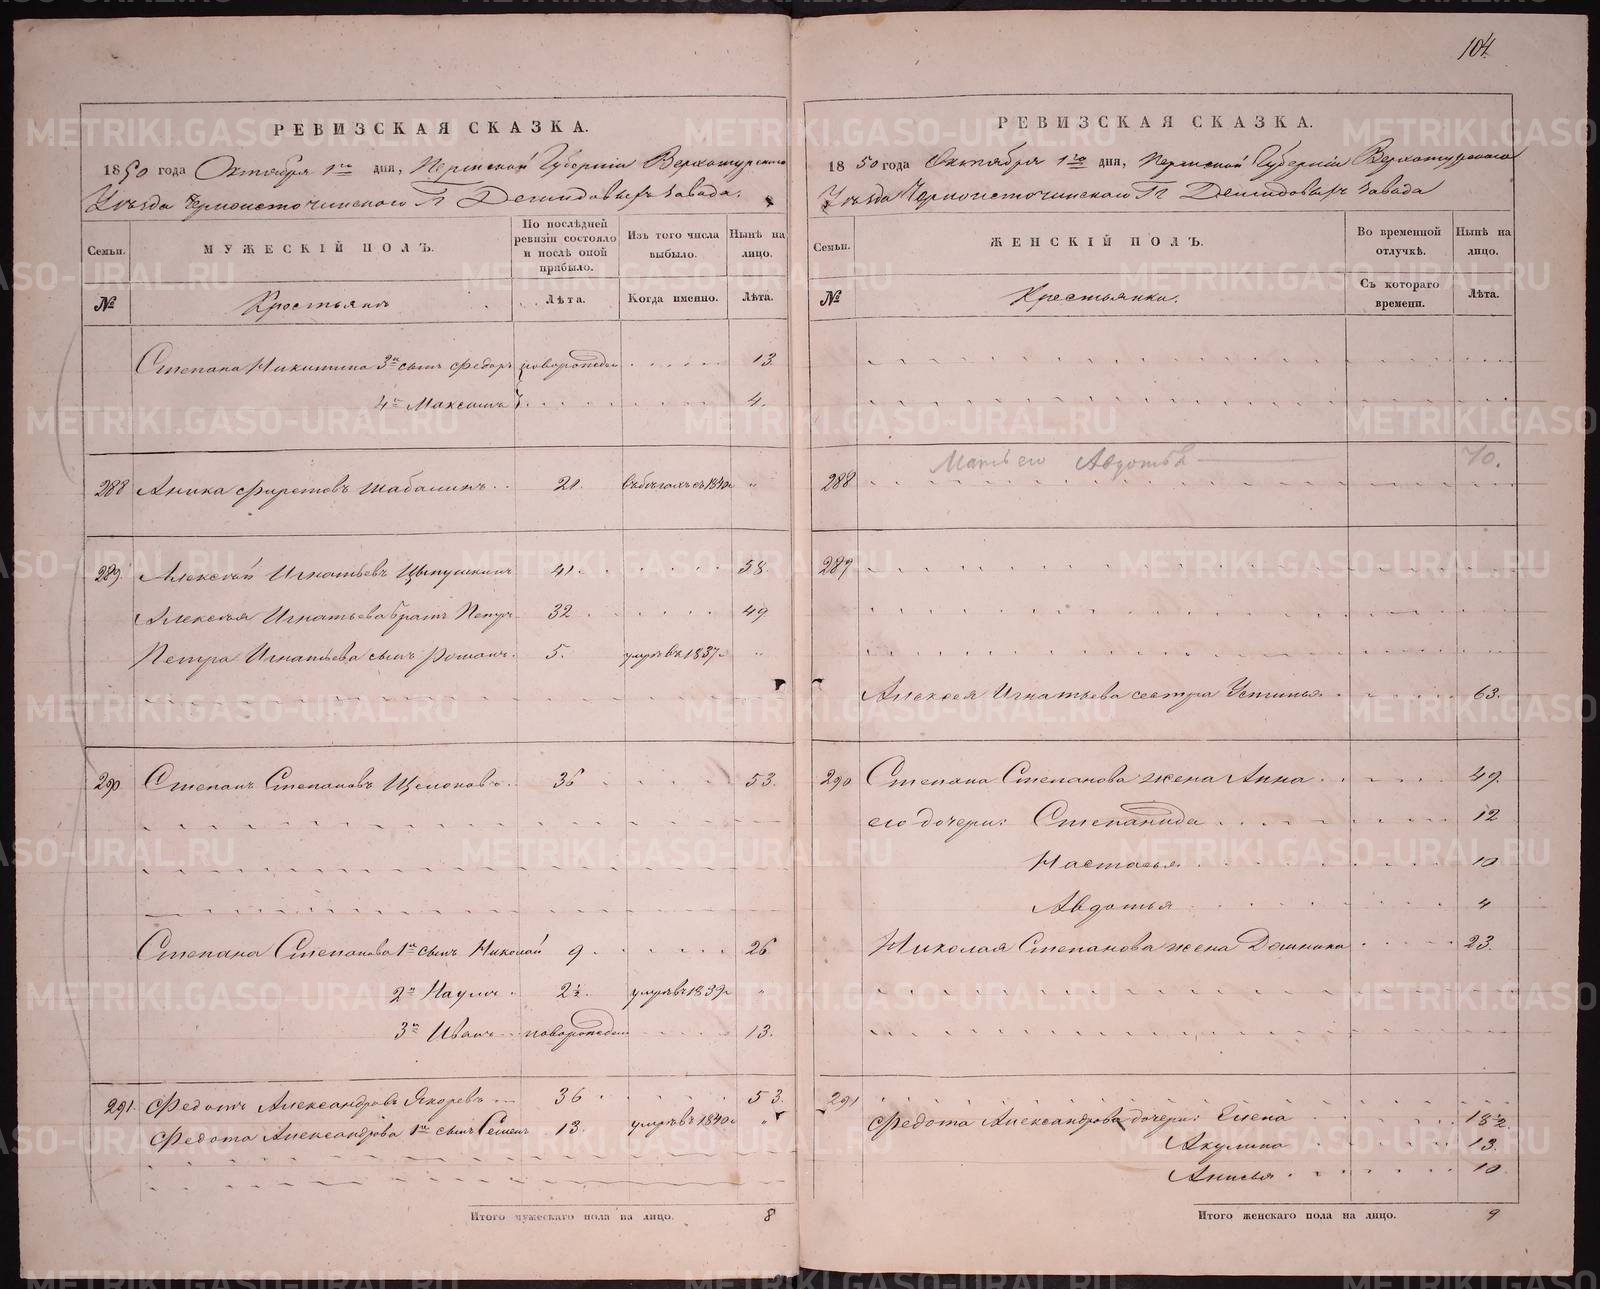 104
РЕВИЗСКАЯ СКАЗКА.
1850 года Октября 1го дня, Пермской Губернiи Верхотурского
Уѣзда Черноисточинского Гг Демидовыхъ завода.
Семьи.
МУЖЕСКІЙ ПОЛЪ.
По послѣдней ревизіи состояло и послѣ оной прибыло.
Изъ того числа выбыло.
Нынѣ на лицо.
№
Крестьянъ
Лѣта.
Когда именно.
Лѣта.
Степана Никитина 3й сынъ Федоръ новорожден 13
4й Максимъ 4.
288 Аника Шабалинъ 21. въ бѣгахъ съ 1840 г "
289. Алексѣй Игнатьевъ Цыпушкинъ 41. 58.
Алексѣя Игнатьева братъ Петръ 32 49
Петра Игнатьева сынъ Романъ 5. умеръ въ 1837 г "
290 Степанъ Степановъ 36 53.
Степана Степанова 1й сынъ Николай 9 26
2й Наумъ 2½. умеръ въ 1839 г "
3й Иванъ новорожден 13.
291. Федотъ Александровъ Якоревъ 36 53.
Федота Александрова 1й сынъ Семенъ 13. умеръ въ 1840 г "
Итого мужескаго пола на лицо. 8
РЕВИЗСКАЯ СКАЗКА.
1850 года Октября 1го дня, Пермской Губернiи Верхотурского
Уѣзда Черноисточинского Гг Демидовыхъ завода
Семьи.
ЖЕНСКІЙ ПОЛЪ.
Во временной отлучкѣ.
Нынѣ на лицо.
№
Крестьянки.
Съ котораго времени.
Лѣта.
Мать его Авдотья 70.
288
289
Алексея Игнатьева сестра Устинья 63.
290 Степана Степанова жена Анна 49.
его дочери: Степанида 12
Настасья 10
Авдотья 4
Николая Степанова жена Домника 23.
291
Федота Александрова дочери: Елена 18½
Акулина 13.
Анисья 10
Итого женскаго пола на лицо. 9
METRIKI.GASO-URAL.RU